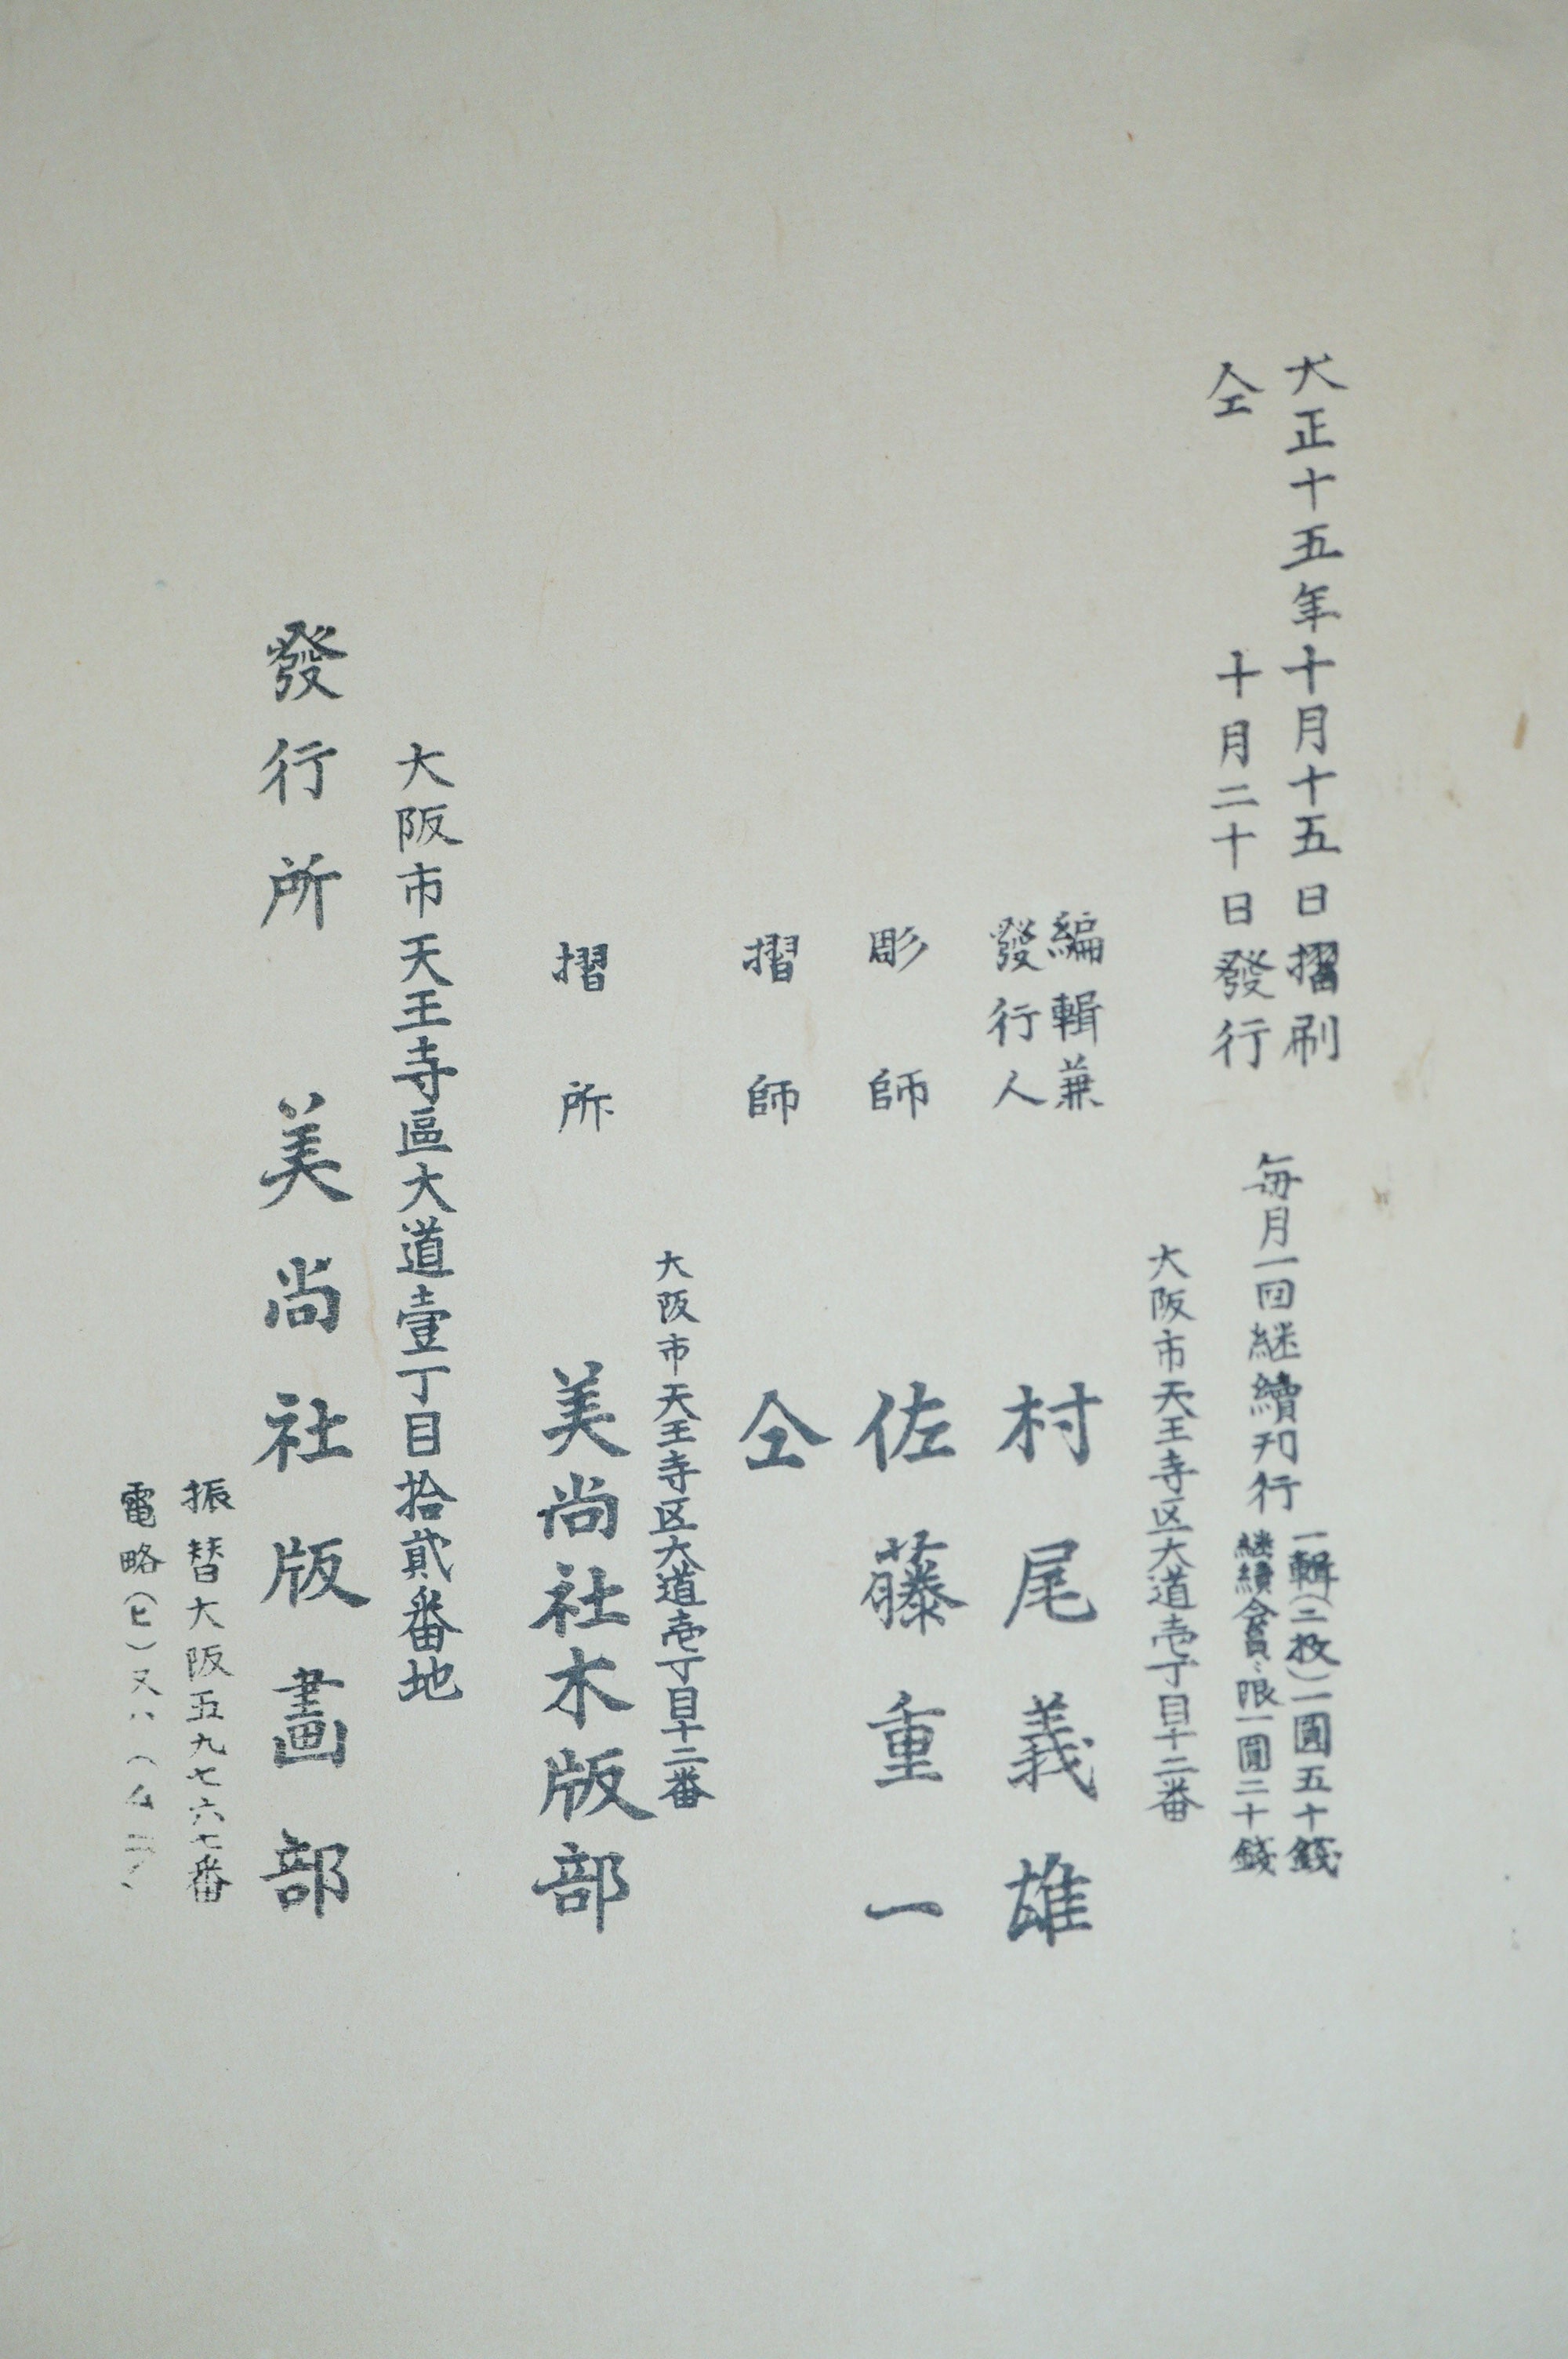 大正十五年十月十五日摺刷
仝 十月二十日發行
毎月一回継續刊行
一輯(二枚)一圓五十錢
継續会員ニ限一圓二十錢
大阪市天王寺区大道壱丁目十二番
編輯兼
發行人 村尾義雄
彫師 佐藤重一
摺師 仝
大阪市天王寺区大道壱丁目十二番
摺所 美尚社木版部
大阪市天王寺區大道壹丁目拾貳番地
發行所 美尚社版畫部
振替大阪五九七六七番
電略(ヒ)又ハ(